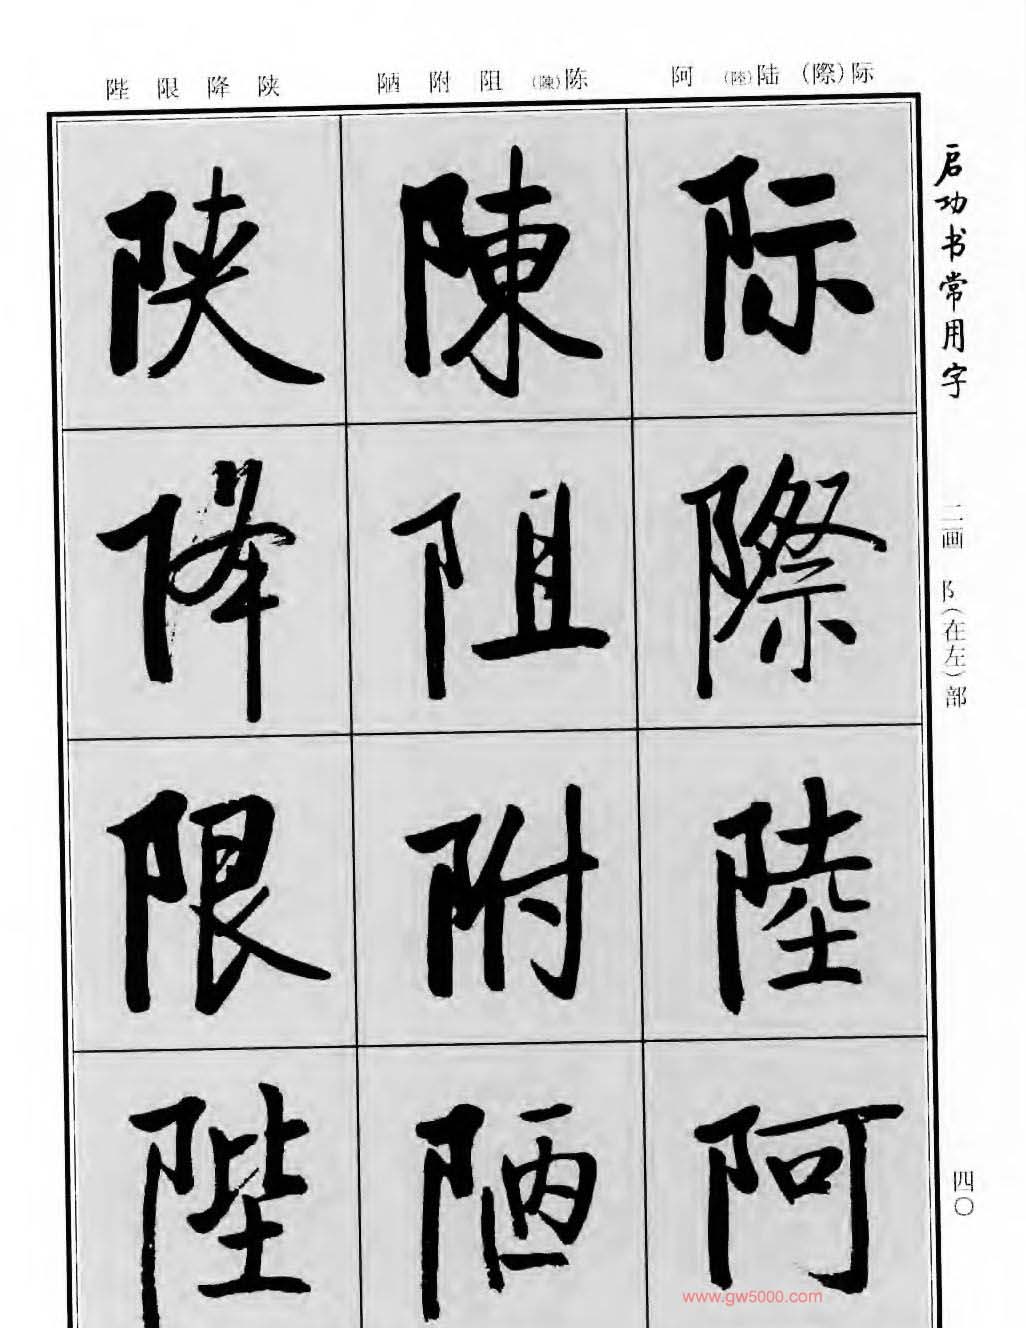 际(際) 陆(陸) 阿
陈(陳) 阻 附 陋
陕 降 限 陛
启功书常用字
二画 阝(在左)部
四〇
际際陸阿
陳阻附陋
陕降限陛
www.gw5000.com